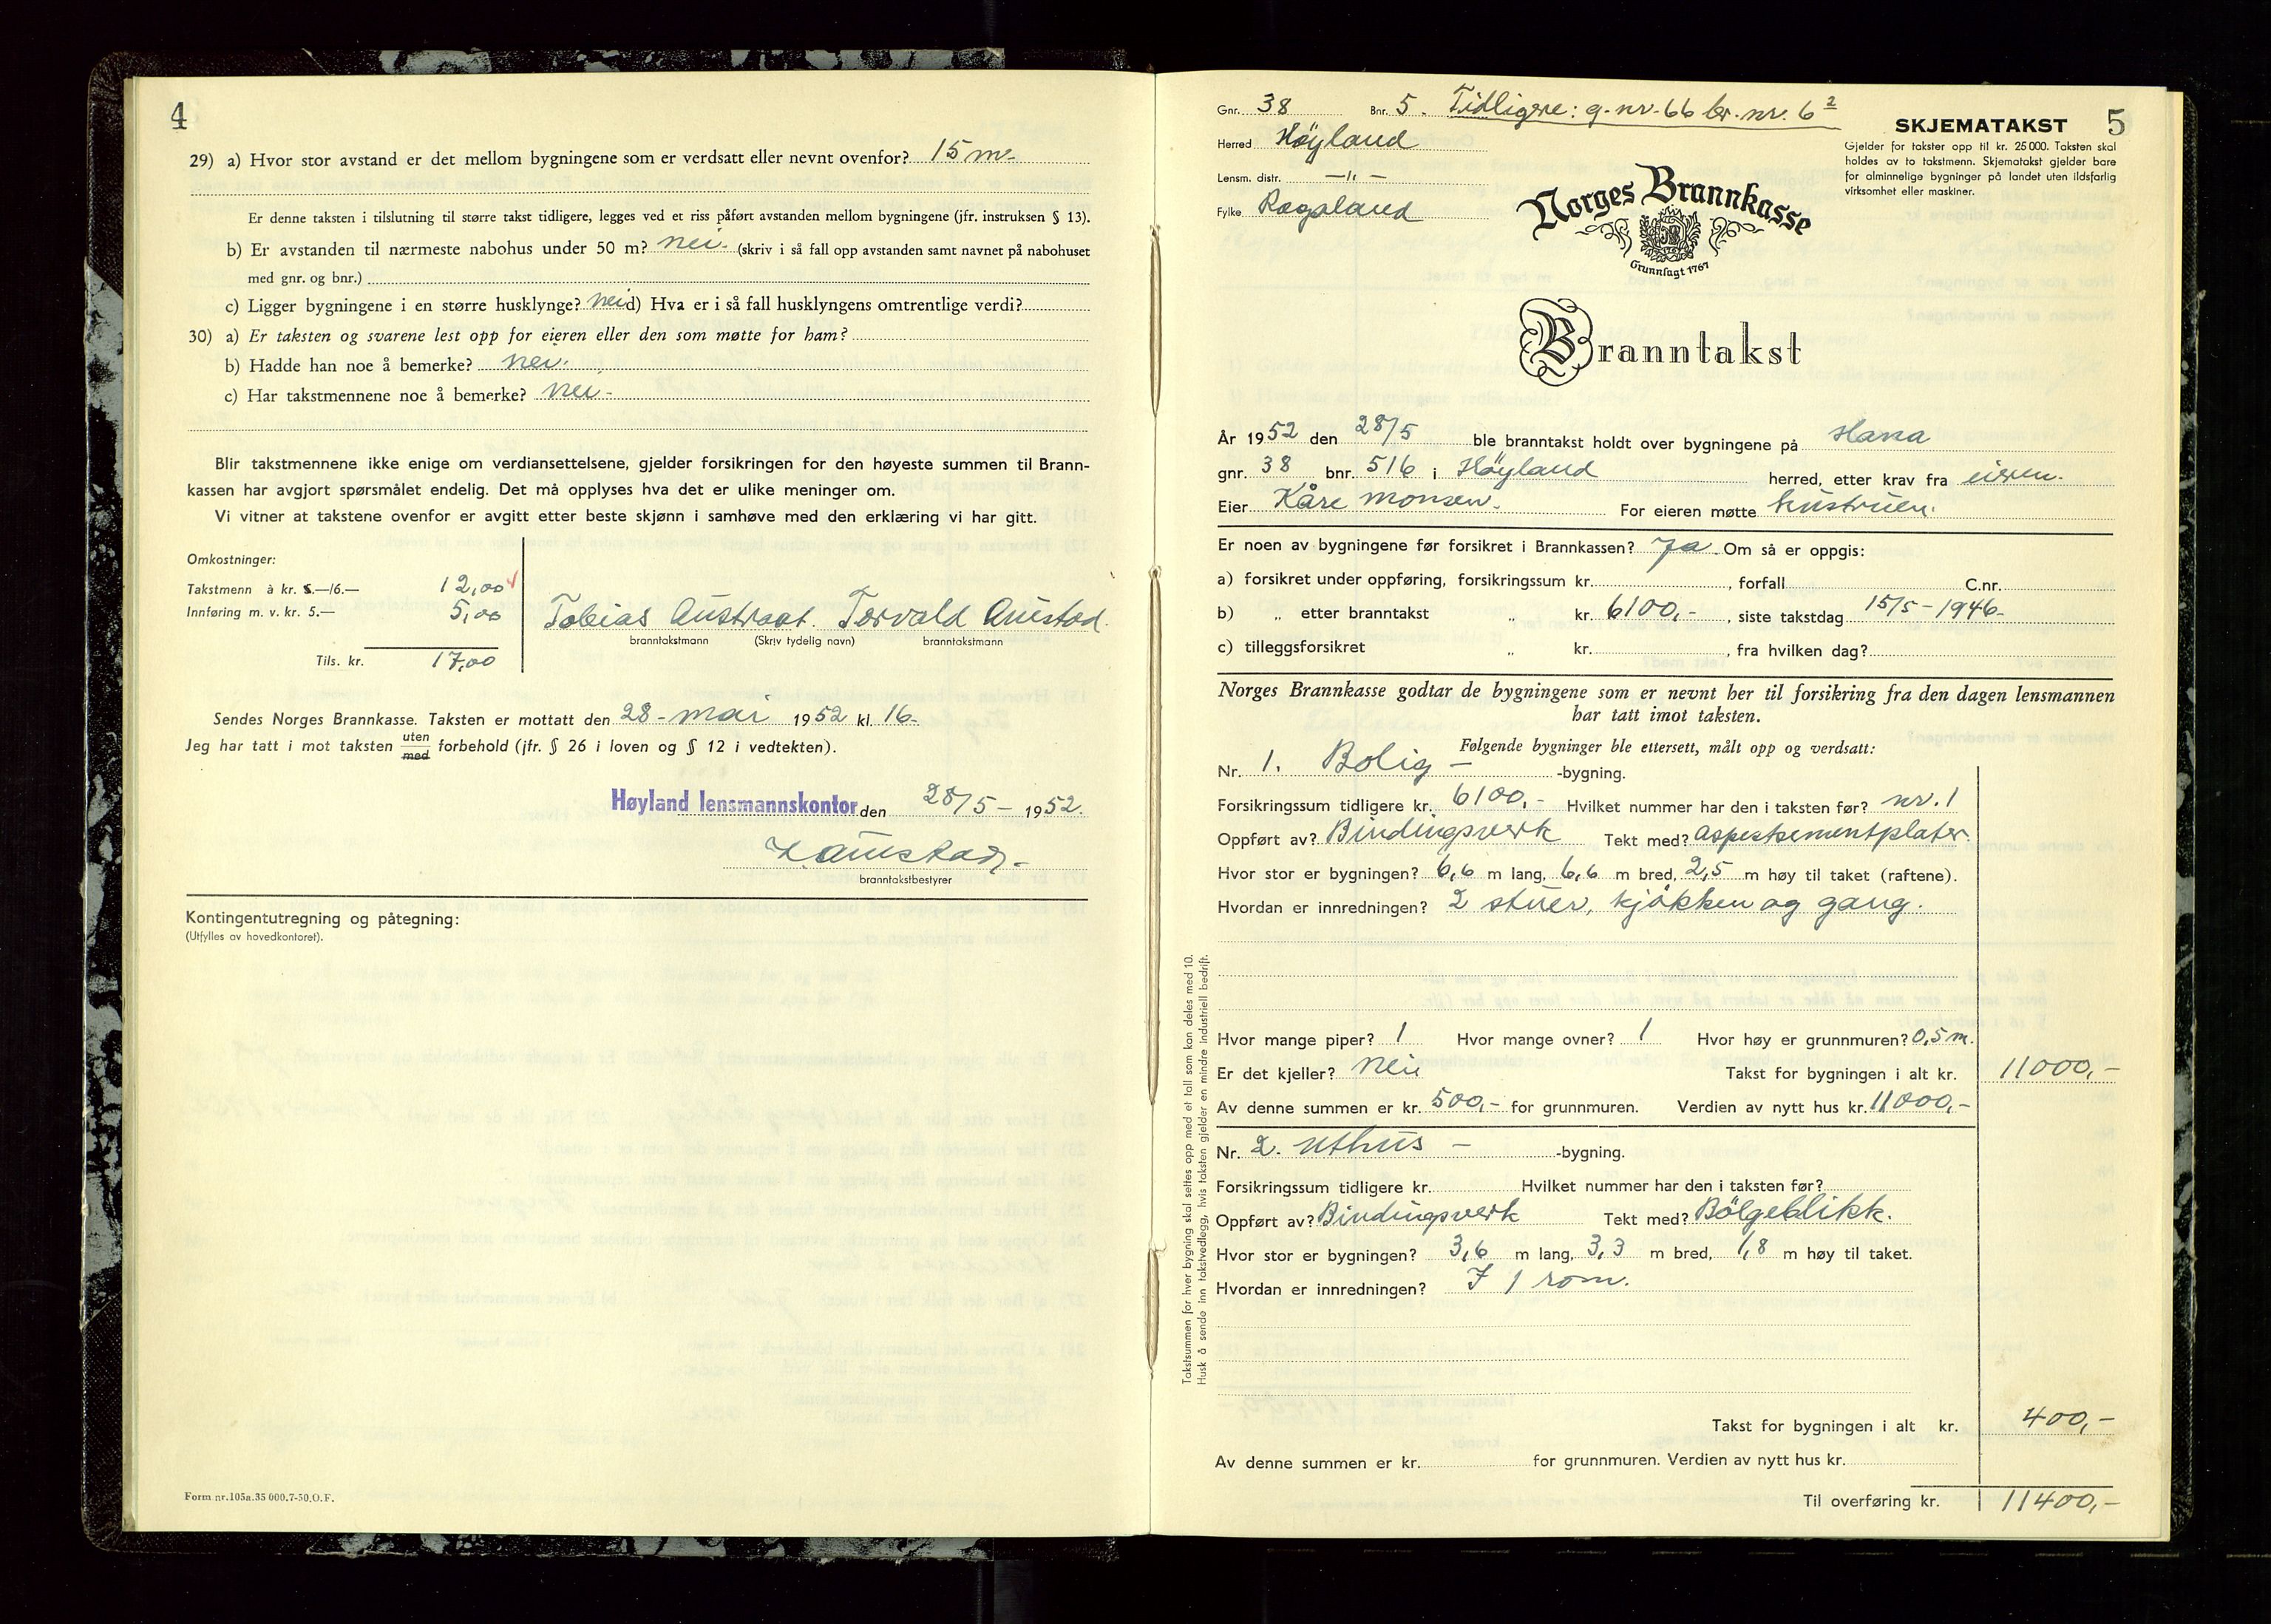 4
29) a) Hvor stor avstand er det mellom bygningene som er verdsatt eller nevnt ovenfor? 15 m.
Er denne taksten i tilslutning til større takst tidligere, legges ved et riss påført avstanden mellom bygningene (jfr. instruksen § 13).
b) Er avstanden til nærmeste nabohus under 50 m? nei. (skriv i så fall opp avstanden samt navnet på nabohuset
med gnr. og bnr.)
c) Ligger bygningene i en større husklynge? nei d) Hva er i så fall husklyngens omtrentlige verdi?
30) a) Er taksten og svarene lest opp for eieren eller den som møtte for ham?
b) Hadde han noe å bemerke? nei.
c) Har takstmennene noe å bemerke? nei -
Blir takstmennene ikke enige om verdiansettelsene, gjelder forsikringen for den høyeste summen til Brann-
kassen har avgjort spørsmålet endelig. Det må opplyses hva det er ulike meninger om.
Vi vitner at takstene ovenfor er avgitt etter beste skjønn i samhøve med den erklæring vi har gitt.
Omkostninger:
Takstmenn à kr. 5.—/6.— 12,00
Innføring m. v. kr. 5.— 5,00
Tils. kr. 17,00
Tobias Austraat. Torvald Austad.
branntakstmann (Skriv tydelig navn) branntakstmann
Sendes Norges Brannkasse. Taksten er mottatt den 28 - mai 1952 kl. 16-
Jeg har tatt i mot taksten uten med forbehold (jfr. § 26 i loven og § 12 i vedtekten).
Høyland lensmannskontor den 28/5 - 1952.
branntakstbestyrer
Kontingentutregning og påtegning:
(Utfylles av hovedkontoret).
Form nr. 105a. 35 000. 7-50. O. F.
Gnr. 38 Bnr. 5. Tidligere: g.nr. 66 br. nr. 6²
SKJEMATAKST 5
Herred Höyland
Gjelder for takster opp til kr. 25 000. Taksten skal
holdes av to takstmenn. Skjematakst gjelder bare
for alminnelige bygninger på landet uten ildsfarlig
virksomhet eller maskiner.
Lensm. distr. —"—
Fylke Rogaland
Norges Brannkasse
Grunnlagt 1767
Branntakst
År 1952 den 28/5 ble branntakst holdt over bygningene på Hana
gnr. 38 bnr. 516 i Höyland herred, etter krav fra eieren.
Eier Kåre Monsen. For eieren møtte hustruen.
Er noen av bygningene før forsikret i Brannkassen? Ja. Om så er oppgis:
a) forsikret under oppføring, forsikringssum kr. , forfall C.nr.
b) „ etter branntakst „ kr. 6100,- , siste takstdag 15/5 - 1946-
c) tilleggsforsikret „ kr. , fra hvilken dag?
Norges Brannkasse godtar de bygningene som er nevnt her til forsikring fra den dagen lensmannen
har tatt imot taksten.
Følgende bygninger ble ettersett, målt opp og verdsatt:
Nr. 1. Bolig - -bygning.
Forsikringssum tidligere kr. 6100,- Hvilket nummer har den i taksten før? nr. 1
Oppført av? Bindingsverk Tekt med? Aspestsementplater.
Hvor stor er bygningen? 6,6 m lang, 6,6 m bred, 2,5 m høy til taket (raftene).
Hvordan er innredningen? 2 stuer, kjökken og gang.
Hvor mange piper? 1 Hvor mange ovner? 1 Hvor høy er grunnmuren? 0,5 m.
Er det kjeller? Nei Takst for bygningen i alt kr. 11000,-
Av denne summen er kr. 500,- for grunnmuren. Verdien av nytt hus kr. 11000,-
Nr. 2. Uthus - -bygning.
Forsikringssum tidligere kr. Hvilket nummer har den i taksten før?
Oppført av? Bindingsverk Tekt med? Bölgeblikk.
Hvor stor er bygningen? 3,6 m lang, 3,3 m bred, 1,8 m høy til taket.
Hvordan er innredningen? I 1 rom.
Takst for bygningen i alt kr. 400,-
Av denne summen er kr. for grunnmuren. Verdien av nytt hus kr.
Til overføring kr. 11400,-
Takstsummen for hver bygning skal settes opp med et tall som kan deles med 10.
Husk å sende inn takstvedlegg, hvis taksten gjelder en mindre industriell bedrift.